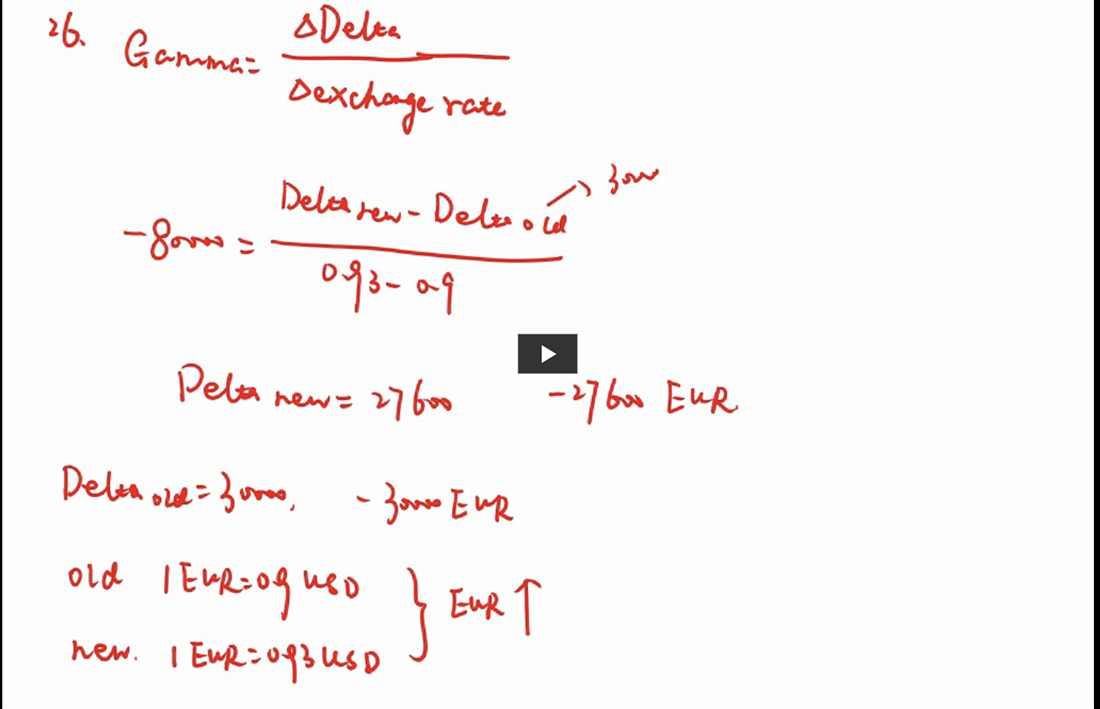 26. Gamma = ΔDelta / Δexchange rate
-80000 = Delta new - Delta old / 0.93 - 0.9 → 30000
Delta new = 27600 -27600 EUR.
Delta old = 30000, -30000 EUR
old 1 EUR = 0.9 USD } EUR ↑
new. 1 EUR = 0.93 USD